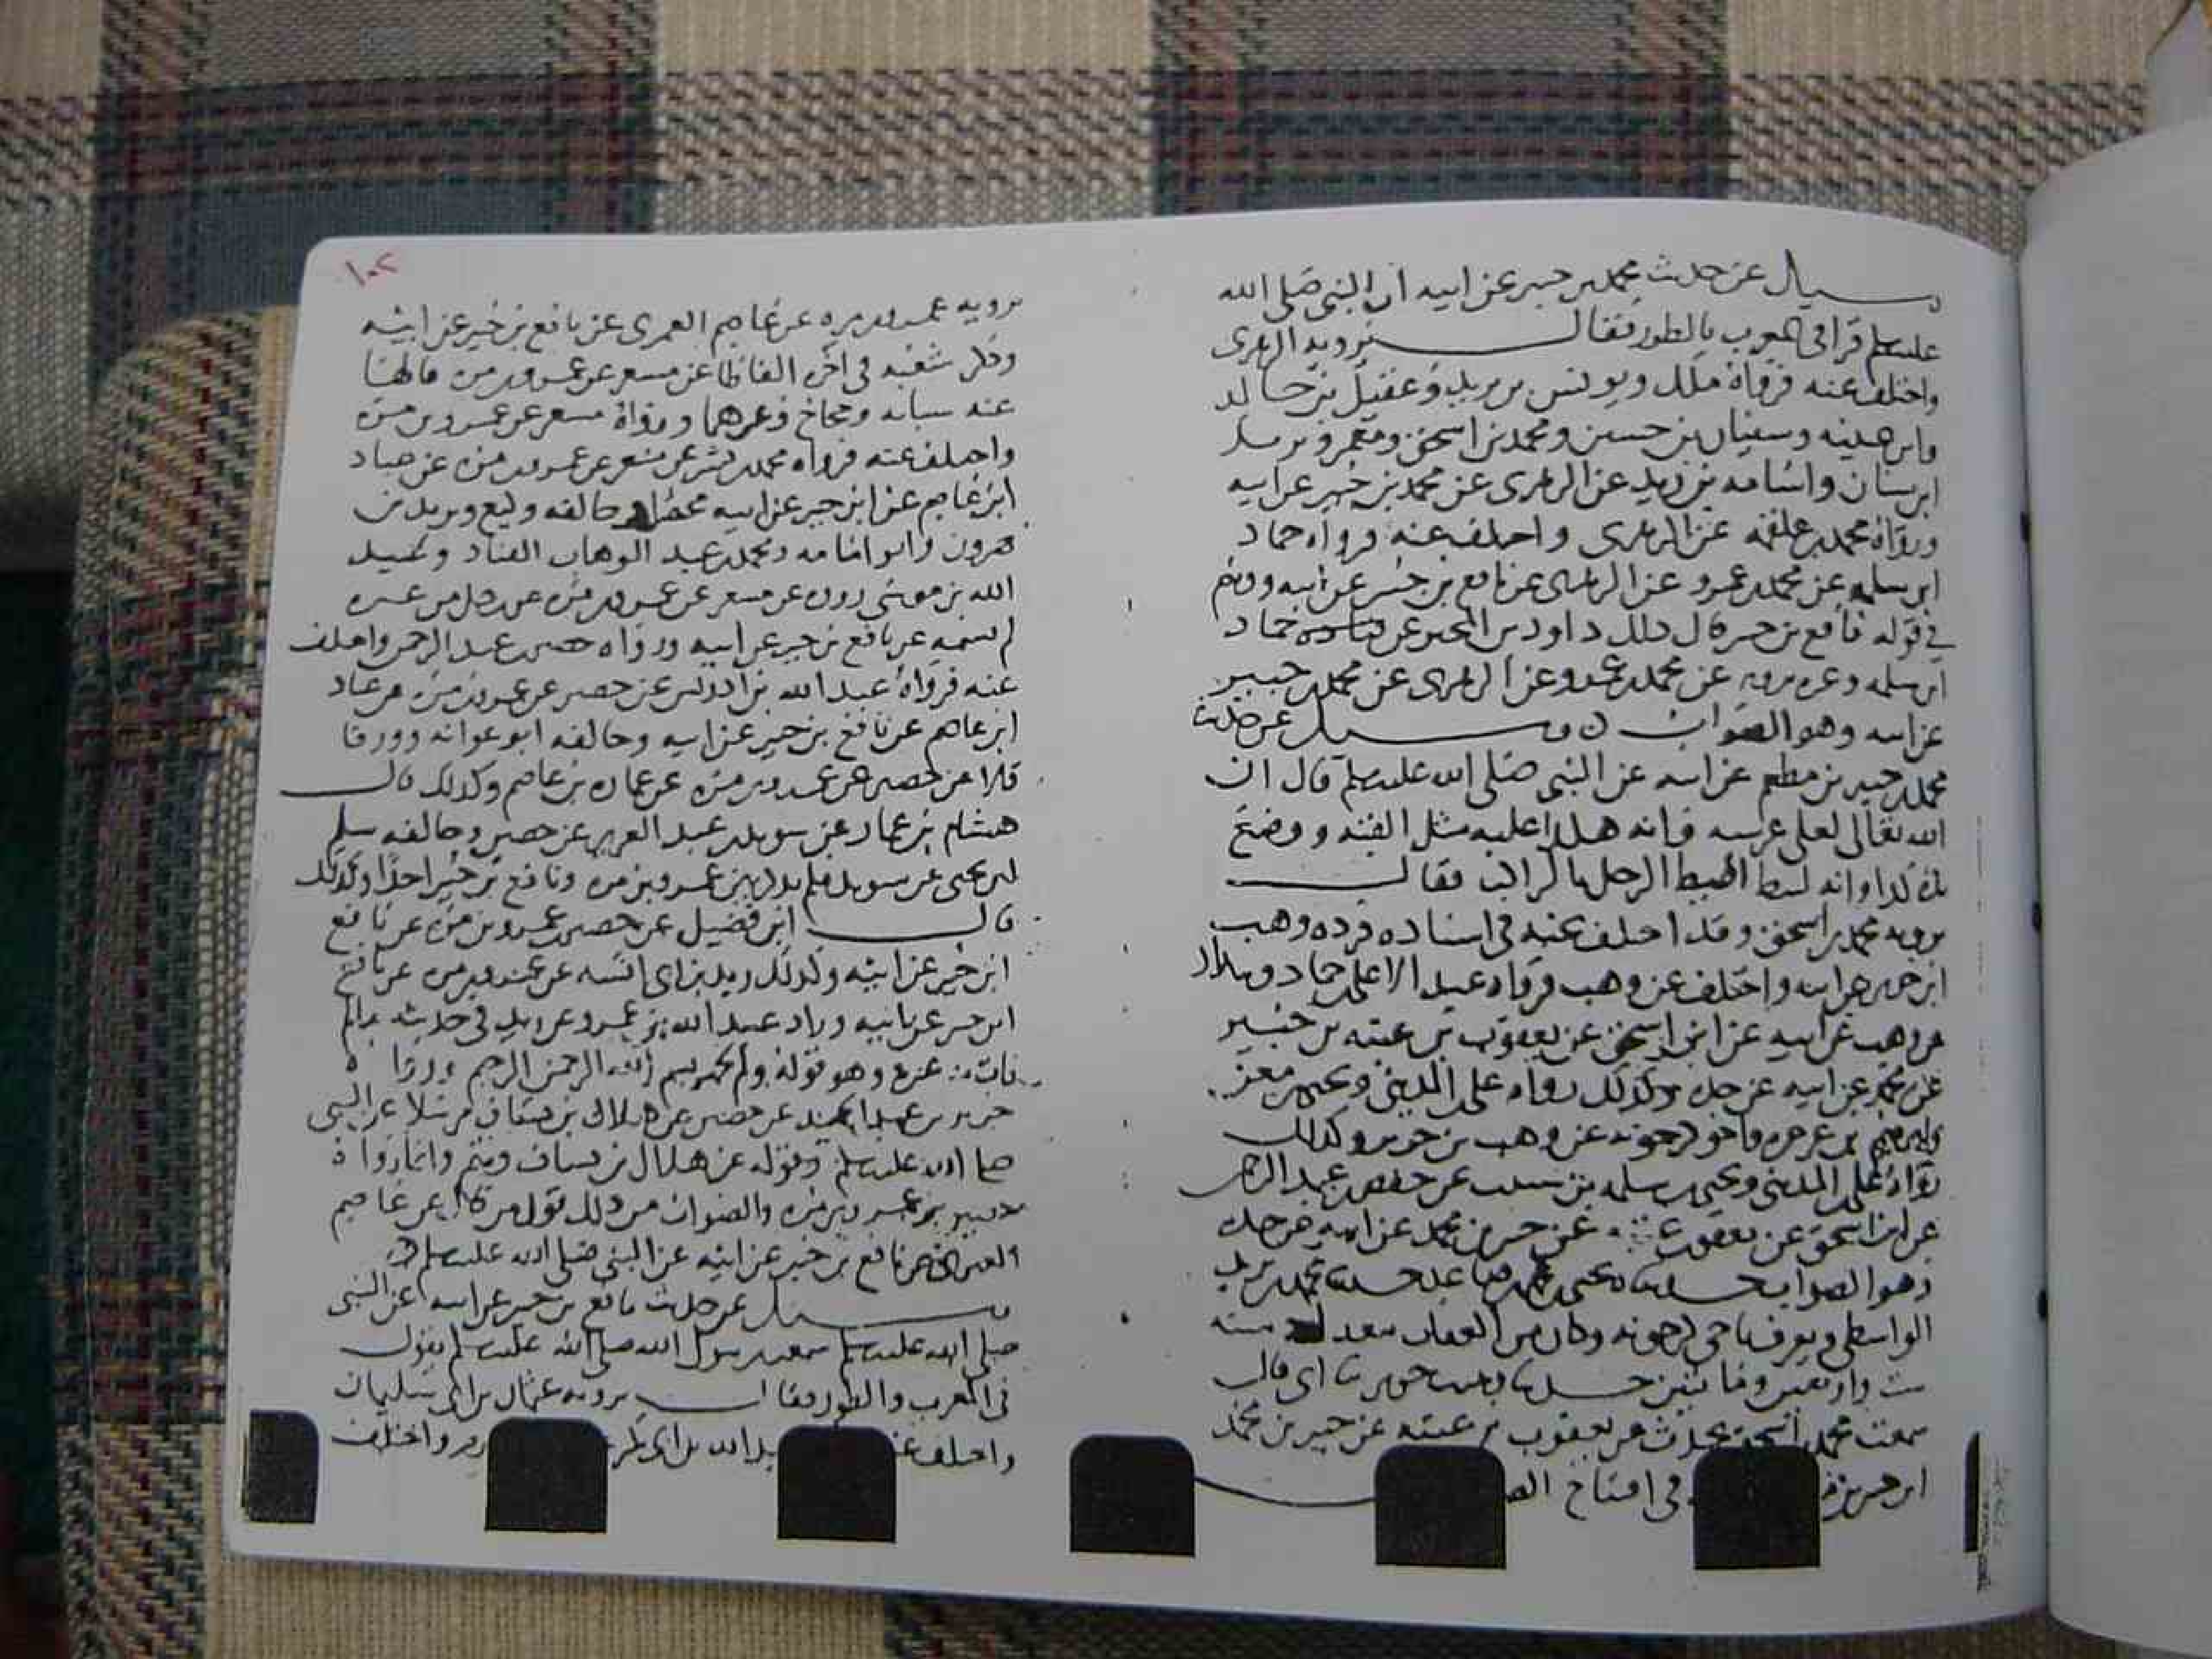 وسئل عن حديث محمد بن جبير عن ابيه ان النبي صلى الله
عليه وسلم قرا في المغرب بالطور فقال يرويه الزهري
واختلف عنه فرواه ملك ويونس بن يزيد وعقيل بن خالد
وابن عيينه وسفيان بن حسين ومحمد بن اسحق ومعمر وبرد
ابن سنان واسامه بن زيد عن الزهري عن محمد بن جبير عن ابيه
ورواه محمد بن علقمه عن الزهري واختلف عنه فرواه حماد
ابن سلمه عن محمد بن عمرو عن الزهري عن نافع بن جبير عن ابيه ووهم
في قوله نافع بن جبير قال ذلك داود بن المحبر عن حماد
ابن سلمه وغيره يرويه عن محمد بن عمرو عن الزهري عن محمد بن جبير
عن ابيه وهو الصواب وسئل عن حديث
محمد بن جبير بن مطعم عن ابيه عن النبي صلى الله عليه وسلم قال ان
الله تعالى لعلى عرشه وانه هكذا عليه مثل القبه ووضع
يده كذا وانه ليئط اطيط الرحل بالراكب فقال
يرويه محمد بن اسحق وقد اختلف عنه في اسناده فرده وهب
ابن جرير عن ابيه واختلف عن وهب فرواه عبد الاعلى بن حماد وبندار
عن وهب عن ابيه عن ابن اسحق عن يعقوب بن عتبه بن جبير
بن محمد عن ابيه عن جده وكذلك رواه علي المديني ويحيى بن معين
وابراهيم بن عرعره واخو كرخويه عن وهب بن جرير وكذلك
رواه علي المديني ويحيى سلمه بن شبيب عن حفص بن عبد الرحمن
عن ابن اسحق عن يعقوب عن جبير بن محمد عن ابيه عن جده
وهو الصواب حدثنا يحيى محمد بن صاعد حدثنا محمد بن يزيد
الواسطي ويعرف باخي كرخويه وكان من الثقات بغداد سنه
ست واربعين ومائتين حدثنا وهب بن جرير نا ابي قال
سمعت محمد بن اسحق يحدث عن يعقوب بن عتبه عن جبير بن محمد
ابن جبير في افتتاح
يرويه عمرو بن مره عن عاصم العمري عن نافع بن جبير عن ابيه
وذكر شعبه في اخره الفاظا عن مسعر عن عمرو بن مره قالها
عنه شبابه وحجاج وغيرهما ورواه مسعر عن عمرو بن مره
واختلف عنه فرواه محمد بن بشر عن مسعر عن عمرو بن مره عن عباد
ابن عاصم عن ابن جبير عن ابيه وخالفه وكيع ويزيد بن
هرون وابو اسامه ومحمد بن عبد الوهاب القناد وعبيد
الله بن موسى رووه عن مسعر عن عمرو بن مره عن رجل من عنزه
لم يسمه عن نافع بن جبير عن ابيه ورواه حصين بن عبد الرحمن واختلف
عنه فرواه عبد الله بن ادريس عن حصين عن عمرو بن مره عن عباد
ابن عاصم عن نافع بن جبير عن ابيه وخالفه ابو عوانه وورقا
قالا عن حصين عن عمرو بن مره عن عمار بن عاصم وكذلك قال
هشام بن عمار عن سويد بن عبد العزيز عن حصين وخالفه سليم
ابن يحيى عن سويد فلم يذكر بين عمرو بن مره ونافع بن جبير احدا وكذلك
قال ابن فضيل عن حصين عن عمرو بن مره عن نافع
ابن جبير عن ابيه وكذلك زيد بن ابي انيسه عن عمرو بن مره عن نافع
ابن جبير عن ابيه وزاد عبيد الله بن عمرو عن زيد في حديثه
وهو قوله ولم يجهر ببسم الله الرحمن الرحيم ورواه
جرير بن عبد الحميد عن حصين عن هلال بن يساف مرسلا عن النبي
صلى الله عليه وسلم وقوله عن هلال بن يساف وهم وانما رواه
حصين عن عمرو بن مره والصواب من ذلك قول من قال عن عاصم
العنزي عن نافع بن جبير عن ابيه عن النبي صلى الله عليه وسلم
وسئل عن حديث نافع بن جبير عن ابيه عن النبي
صلى الله عليه وسلم سمعت رسول الله صلى الله عليه وسلم يقول
في المغرب والطور فقال يرويه عثمان بن ابي سليمان
واختلف عبد الله بن ابي بكر واختلف
١٠٢